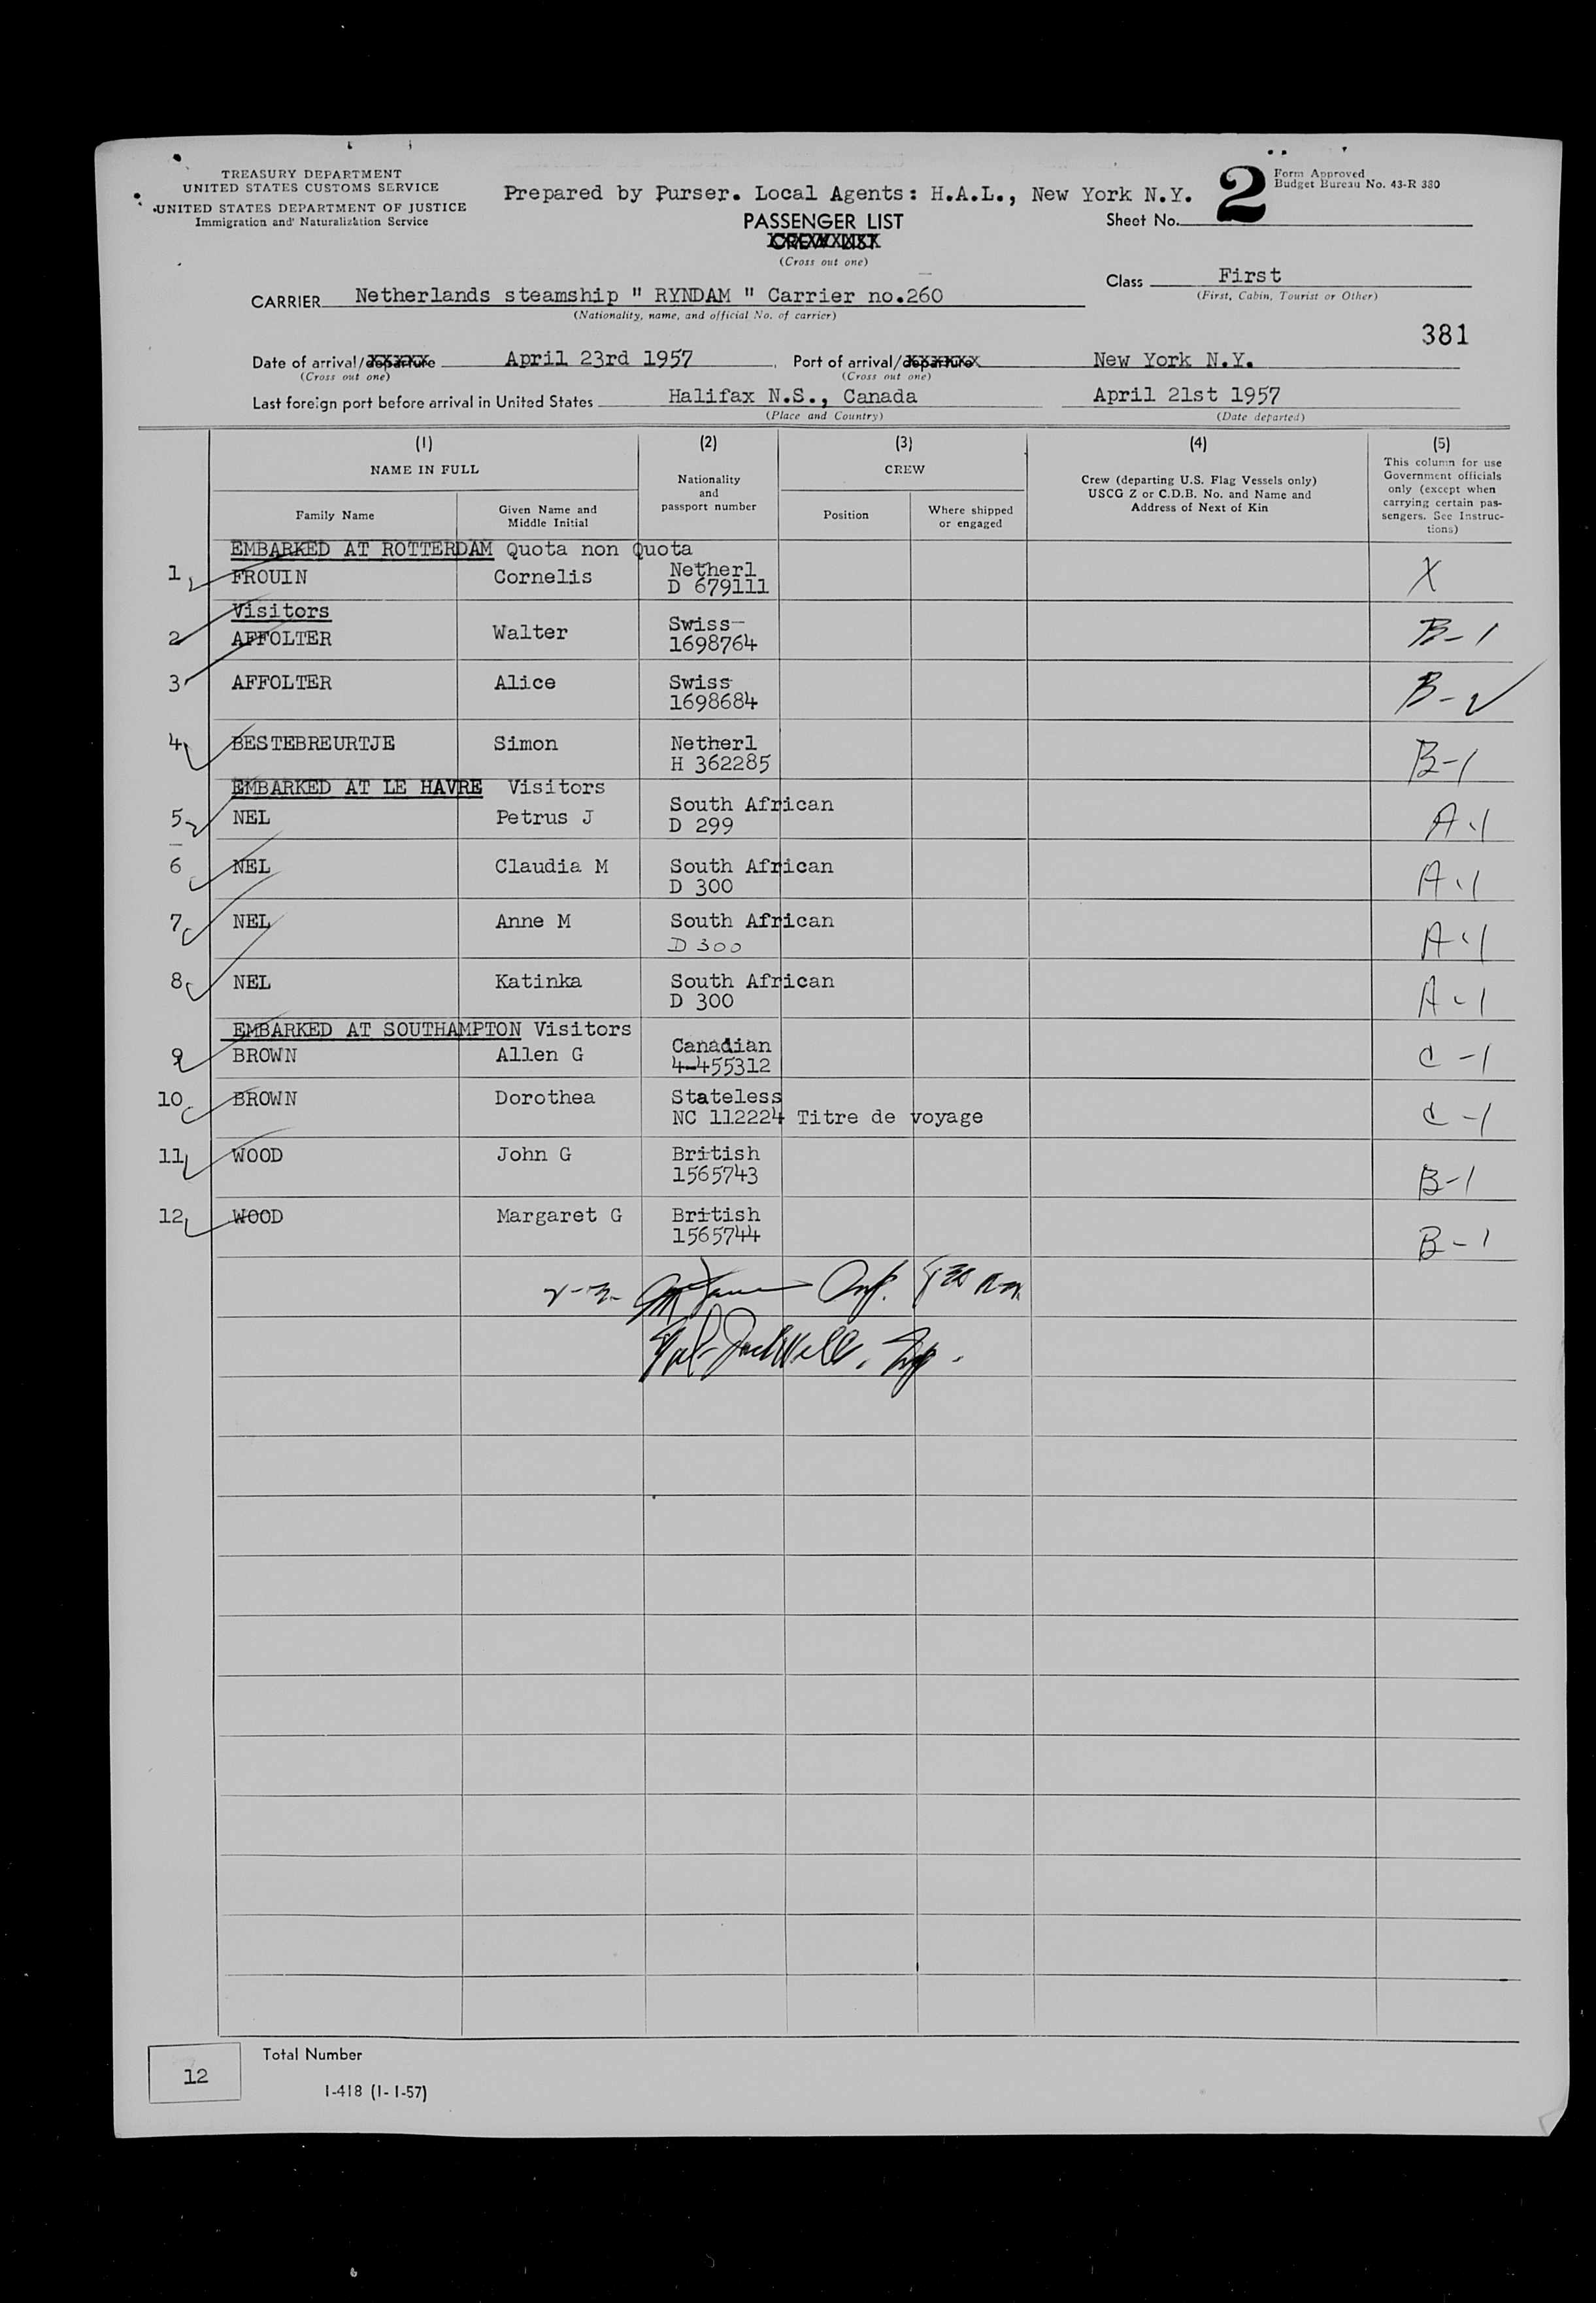 TREASURY DEPARTMENT
UNITED STATES CUSTOMS SERVICE
UNITED STATES DEPARTMENT OF JUSTICE
Immigration and Naturalization Service
Prepared by Purser. Local Agents: H.A.L., New York N.Y.
PASSENGER LIST
CREW LIST
(Cross out one)
2
Form Approved
Budget Bureau No. 43-R 380
Sheet No.
Class First
(First, Cabin, Tourist or Other)
CARRIER Netherlands steamship " RYNDAM " Carrier no.260
(Nationality, name, and official No. of carrier)
381
Date of arrival/departure April 23rd 1957, Port of arrival/departure New York N.Y.
(Cross out one) (Cross out one)
Last foreign port before arrival in United States Halifax N.S., Canada April 21st 1957
(Place and Country) (Date departed)
(1) (2) (3) (4) (5)
NAME IN FULL
Family Name
Given Name and
Middle Initial
Nationality
and
passport number
CREW
Position
Where shipped
or engaged
Crew (departing U.S. Flag Vessels only)
USCG Z or C.D.B. No. and Name and
Address of Next of Kin
This column for use
Government officials
only (except when
carrying certain pas-
sengers. See Instruc-
tions)
EMBARKED AT ROTTERDAM Quota non Quota
1 FROUIN Cornelis Netherl X
D 679111
Visitors
2 AFFOLTER Walter Swiss B-1
1698764
3 AFFOLTER Alice Swiss B-2
1698684
4 BESTEBREURTJE Simon Netherl B-1
H 362285
EMBARKED AT LE HAVRE Visitors
5 NEL Petrus J South African A-1
D 299
6 NEL Claudia M South African A-1
D 300
7 NEL Anne M South African A-1
D 300
8 NEL Katinka South African A-1
D 300
EMBARKED AT SOUTHAMPTON Visitors
9 BROWN Allen G Canadian C-1
4-455312
10 BROWN Dorothea Stateless C-1
NC 112224 Titre de voyage
11 WOOD John G British B-1
1565743
12 WOOD Margaret G British B-1
1565744
12
Total Number
I-418 (1-1-57)